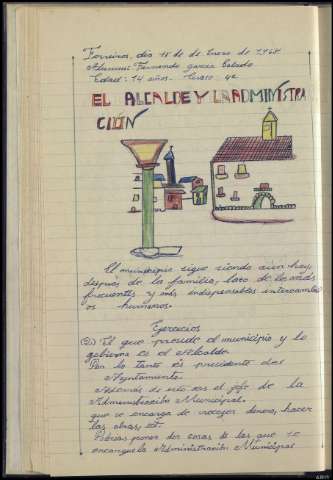 Ferreiros, día 15 de de Enero de 1.968
Alumno: Fernando garcía Celado
Edad: 14 años. Curso: 4º
EL ALCALDE Y LA ADMINISTRA
CIÓN
El municipio sigue siendo aún hoy,
después de la familia, lazo de los más
frecuentes y más indispensables intercambi
os humanos.
Ejercicios
El que preside el municipio y lo
gobierna es el Alcalde
Por lo tanto es presidente del
Ayuntamiento.
Además de esto es el jefe de la
Administración Municipal.
que se encarga de recoger dinero, hacer
las obras, etc.
poner dos cosas de las que se
encargue la Administración Municipal